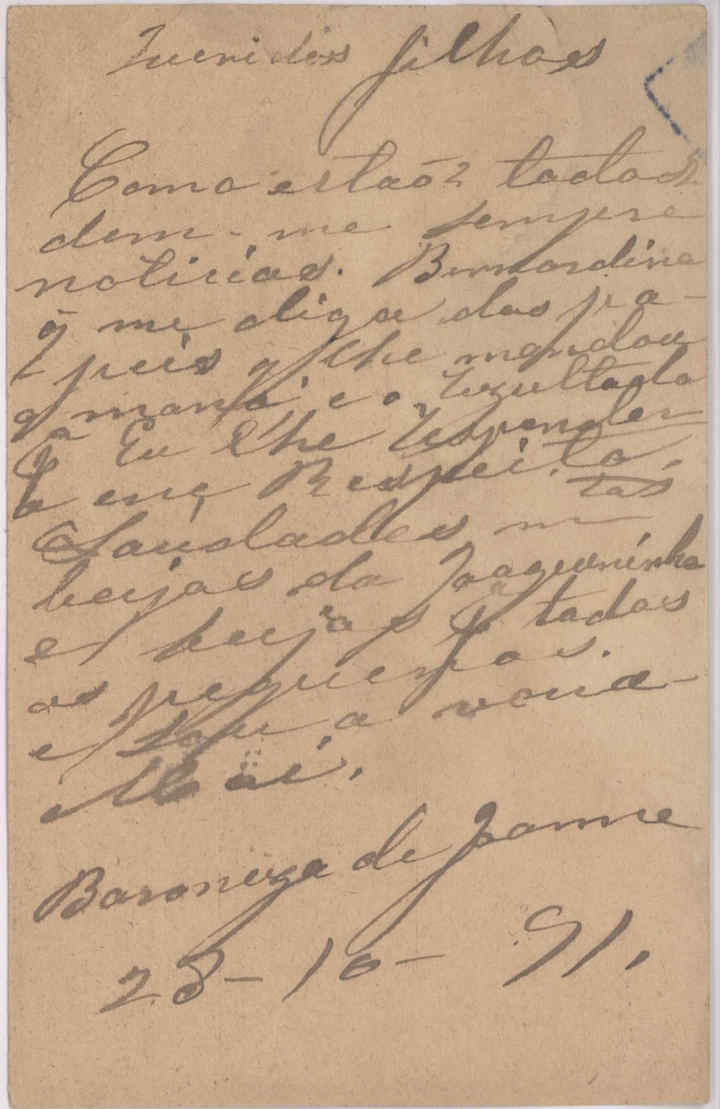 Queridos filhos
Como estaõ? todos
dem-me sempre
noticias. Bernardina
q̃ me diga dos pa-
peis q̃ lhe mandou
a maná e o rezultado
pª Eu lhe responder
a esse Respeito.
Saudades m tas
beijos da Joaquininha
e beijos pª todos
os pequenos.
e sou a vossa
Mãi.
Baroneza de Joanne
28-10-91.